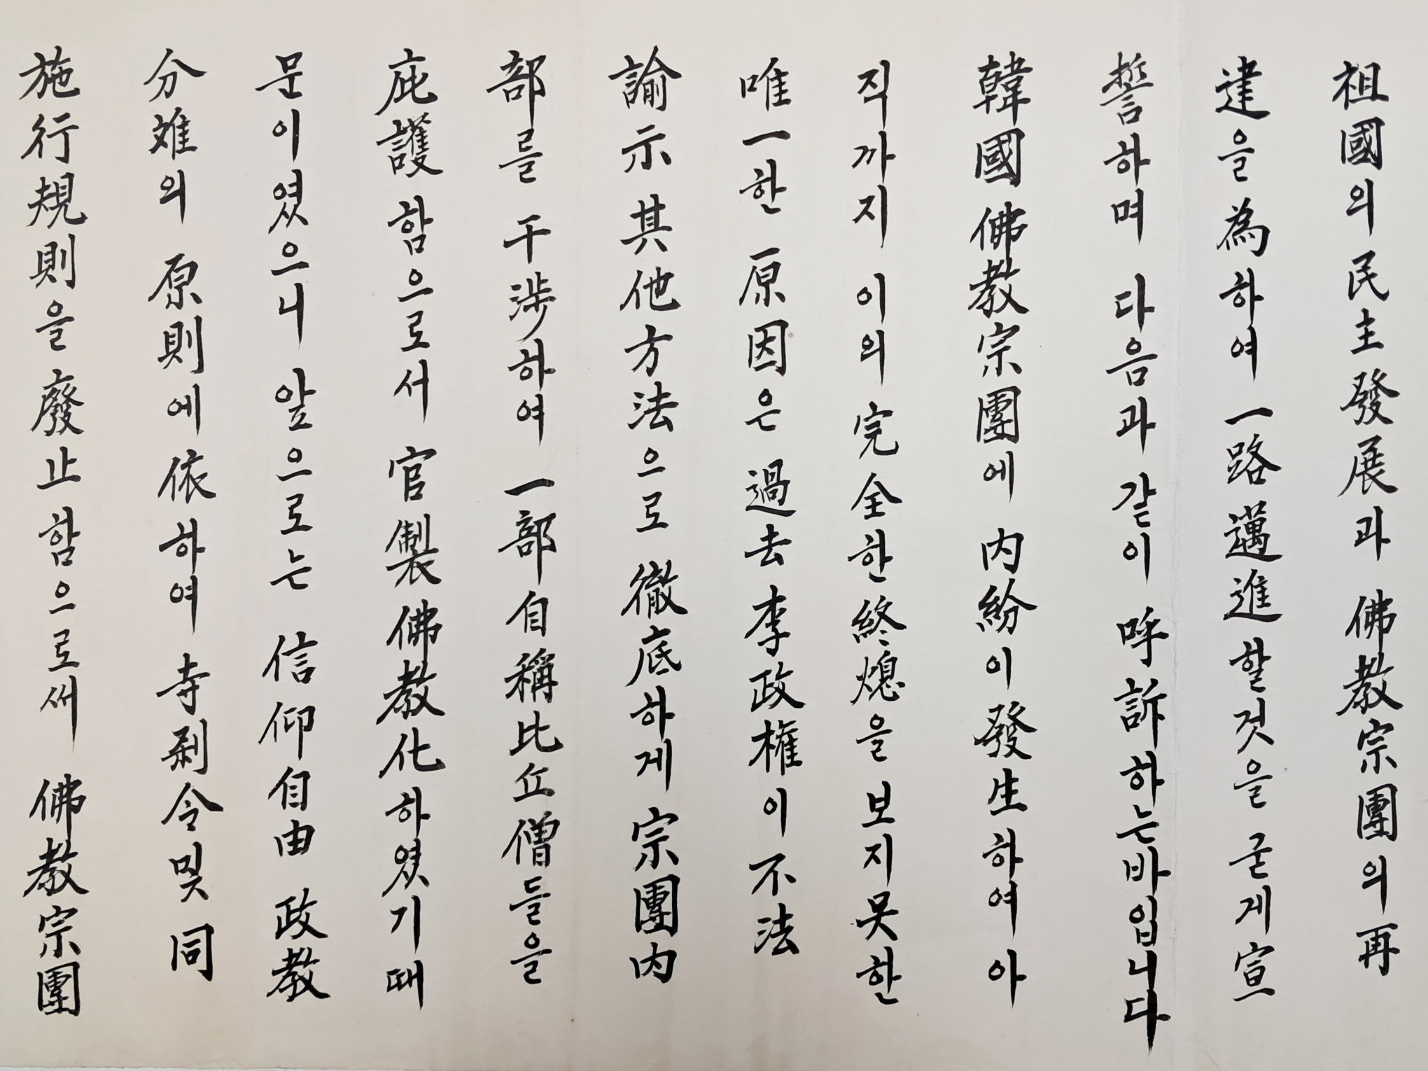 祖國의 民主發展과 佛教宗團의 再
建을 為하여 一路邁進할것을 굳게 宣
誓하며 다음과 같이 呼訴하는바입니다
韓國佛教宗團에 內紛이 發生하여 아
직까지 이의 完全한 終熄을 보지못한
唯一한 原因은 過去 李政權이 不法
諭示 其他方法으로 徹底하게 宗團內
部를 干涉하여 一部 自稱比丘僧들을
庇護함으로서 官製佛教化하였기때
문이였으니 앞으로는 信仰自由 政教
分난의 原則에 依하여 寺剎令및 同
施行規則을 廢止함으로써 佛教宗團